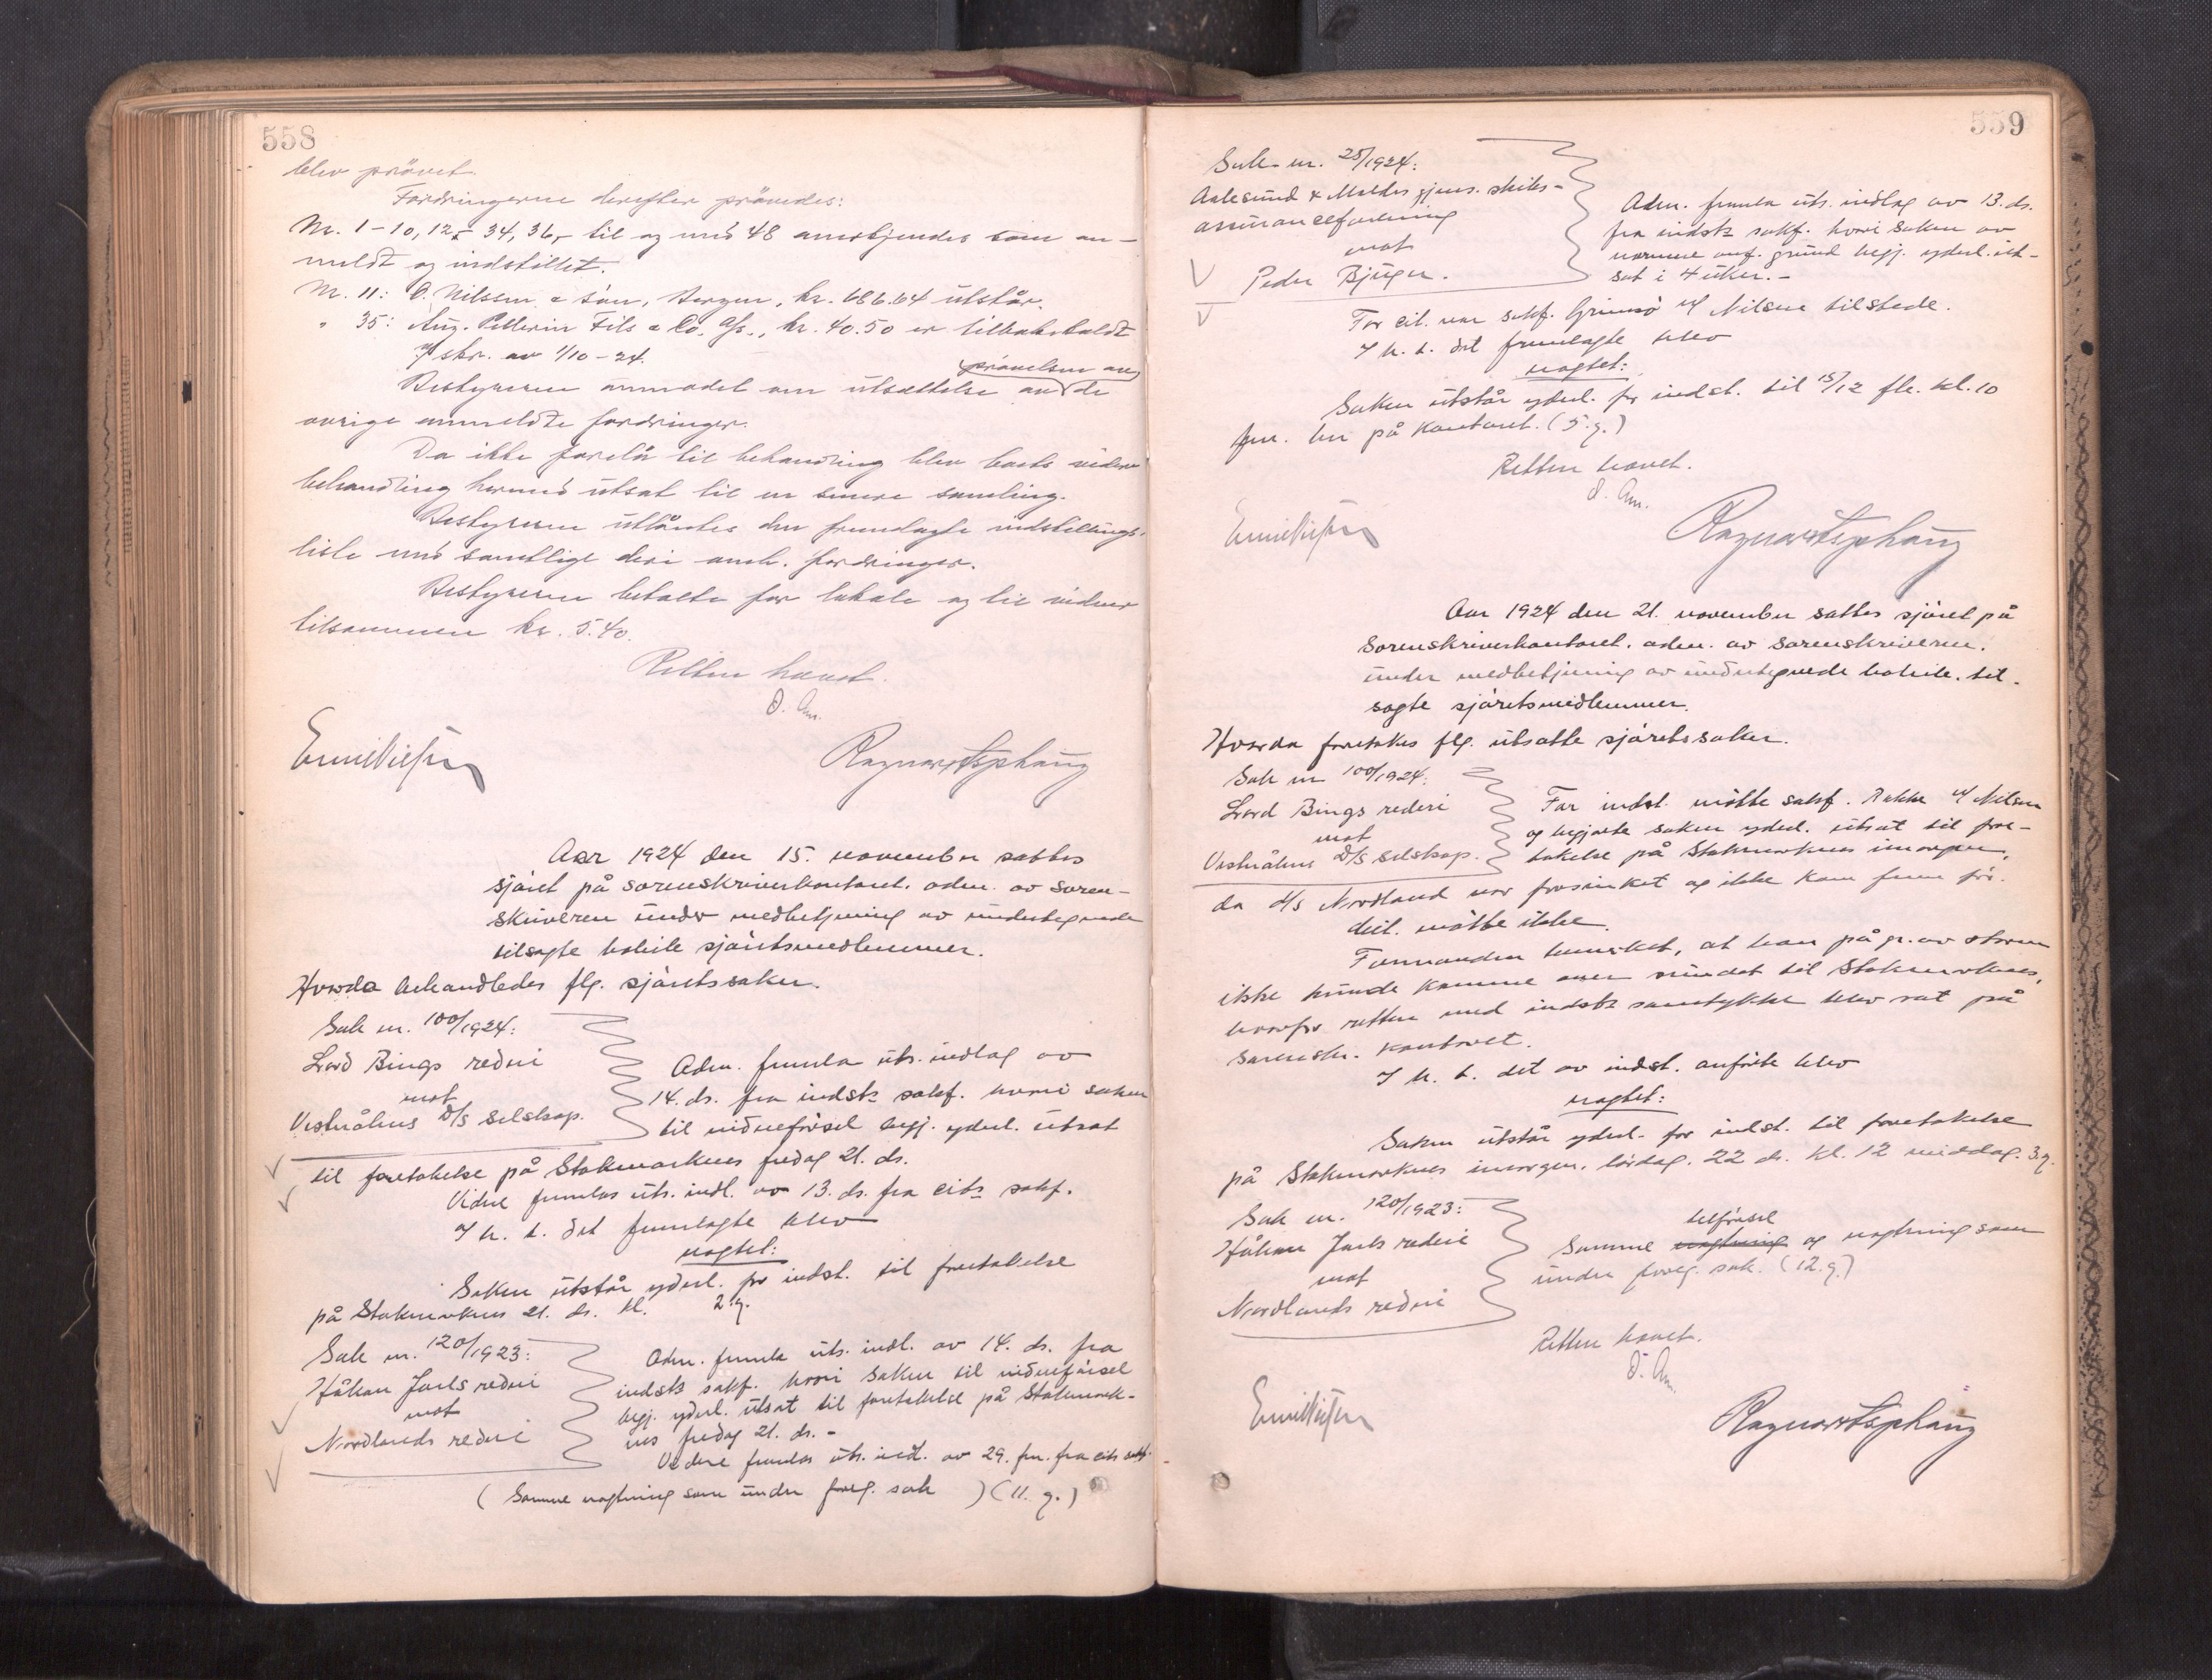 558
blev prövet.
Fordringerne derefter prövedes:
Nr. 1-10, 12,- 34, 36,- til og med 48 anerkjendes som an-
meldt og indstillet.
Nr. 11: O. Nilssen & Sön, Bergen, kr. 686.64 utstår.
" 35: Aug. Pellerin Fils & Co. A/s., kr. 40.50 er tilbakekaldt
skr. av 1/10-24.
prövelsen av
Bestyreren anmodet om utsættelse av de
övrige anmeldte fordringer.
Da ikke forelå til behandling blev boets videre
behandling hermed utsat til en senere samling.
Bestyreren utlåntes den fremlagte indstillings-
liste med samtlige deri anm. fordringer.
Bestyreren betalte for lokale og til vidner
tilsammen kr. 5.40.
Retten hævet.
O. Am.
Ragnar
Aar 1924 den 15. november sattes
sjöret på sorenskriverkontoret. adm. av soren-
skriveren under medbetjening av undertegnede
tilsagte habile sjöretsmedlemmer.
Hvorda behandledes flg. sjöretssaker.
Sak nr. 100/1924:
Lord Bings rederi
mot
Vesterålens D/S selskap.
Adm. fremla uts. indlæg av
14. ds. fra indst.s sakf. hvori saken
til vidneförsel begj. yderl. utsat
til foretakelse på Stokmarknes fredag 21. ds.
Videre fremlas uts. indl. av 13. ds. fra cits sakf.
I h. t. det fremlagte blev
vagtet:
Saken utstår yderl. for indst. til foretakelse
på Stokmarknes 21. ds. kl. 2.g.
Sak nr. 120/1923:
Håkon Jarls rederi
mot
Nordlands rederi
Adm. fremla uts. indl. av 14. ds. fra
indsts sakf. hvori saken til vidneförsel
begj. yderl. utsat til foretakelse på Stokmark-
nes fredag 21. ds. -
Videre fremlas uts. indl. av 29. fm. fra cits sakf.
( Samme vagtning som under foreg. sak ) (11. g.)
559
Sak nr. 25/1924:
Aalesund & Moldes gjens. skibs-
assuranceforening
mot
Peder Bjögen.
Adm. fremla uts. indlæg av 13. ds.
fra indsts sakf. hvori saken av
nærmere anf. grund begj. yderl. ut-
sat i 4 uker. -
For cit. var sakf. Grimsö v/ Nilsen tilstede.
I h. t. det fremlagte blev
vagtet:
Saken utstår yderl. for indst. til 15/12 fk. kl. 10
fm. her på kontoret. (5. g.)
Retten hævet.
O. Am.
Ragnar
Aar 1924 den 21. november sattes sjöret på
sorenskriverkontoret. adm. av sorenskriveren.
under medbetjening av undertegnede habile. til-
sagte sjöretsmedlemmer.
Hvorda foretakes flg. utsatte sjöretssaker.
Sak nr 100/1924:
Lord Bings rederi
mot
Vesterålens D/S selskap.
For indst. mötte sakf. Rakke v/ Nilsen
og begjærte saken yderl. utsat til fore-
takelse på Stokmarknes imorgen,
da d/s Nordland var forsinket og ikke kom frem för.
Cit. mötte ikke.
Formanden bemerket, at han på gr. av storm
ikke kunde komme over sundet til Stokmarknes,
hvorfor retten med indsts samtykke blev sat på
sorenskr. kontoret.
I h. t. det av indst. anförte blev
vagtet:
Saken utstår yderl. for indst. til foretakelse
på Stokmarknes imorgen, lördag, 22 ds. kl. 12 middag. 3.g.
Sak nr. 120/1923:
Håkon Jarls rederi
mot
Nordlands rederi
tilförsel
Samme vagtning og vagtning som
under foreg. sak. (12. g.)
Retten hævet.
O. Am.
Ragnar